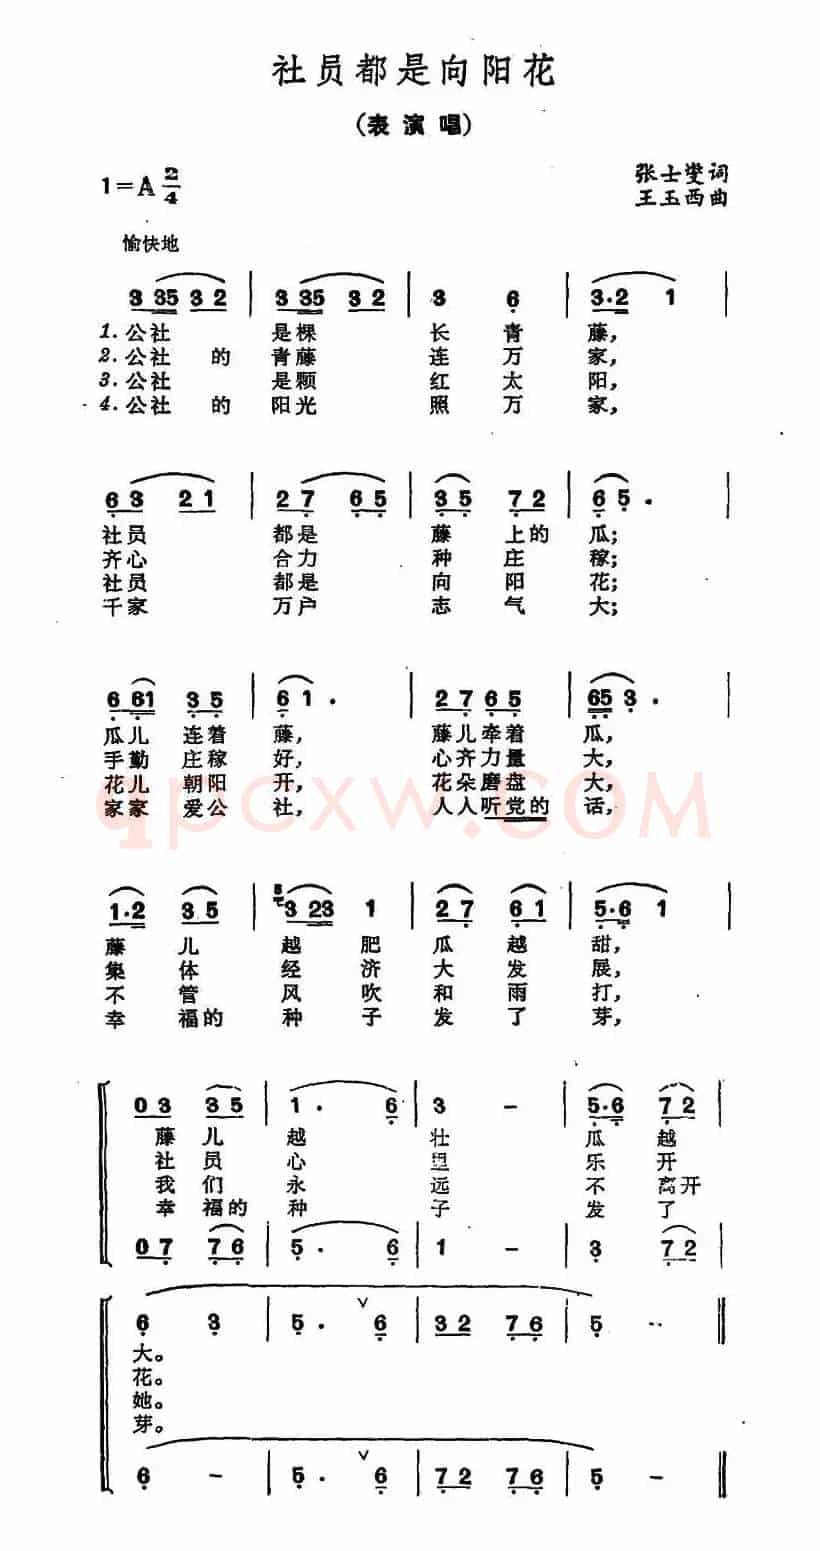 社员都是向阳花
(表演唱)
1=A 2/4
张士燮词
王玉西曲
愉快地
3 35 3 2 | 3 35 3 2 | 3 6 | 3·2 1 |
1. 公社 是棵 长青藤,
2. 公社的青藤 连万家,
3. 公社 是颗 红太阳,
4. 公社的阳光 照万家,
6 3 2 1 | 2 7 6 5 | 3 5 7 2 | 6 5 . |
社员 都是 藤上的瓜;
齐心 合力 种庄稼;
社员 都是 向阳花;
千家 万户 志气大;
6 61 3 5 | 6 1 . | 2 7 6 5 | 65 3 . |
瓜儿连着藤, 藤儿牵着瓜,
手勤庄稼好, 心齐力量大,
花儿朝阳开, 花朵磨盘大,
家家爱公社, 人人听党的话,
qpcxw.COM
1·2 3 5 | 3 23 1 | 2 7 6 1 | 5·6 1 |
藤儿越肥瓜越甜,
集体经济大发展,
不管风吹和雨打,
幸福的种子发了芽,
0 3 3 5 | 1 . 6 | 3 - | 5·6 7 2 |
藤儿越壮瓜越
社员心里乐开
我们永远不离开
幸福的种子发了
0 7 7 6 | 5 . 6 | 1 - | 3 7 2 |
6 3 | 5 . ∨ 6 | 3 2 7 6 | 5 - ‖
大。
花。
她。
芽。
6 - | 5 . ∨ 6 | 7 2 7 6 | 5 - ‖